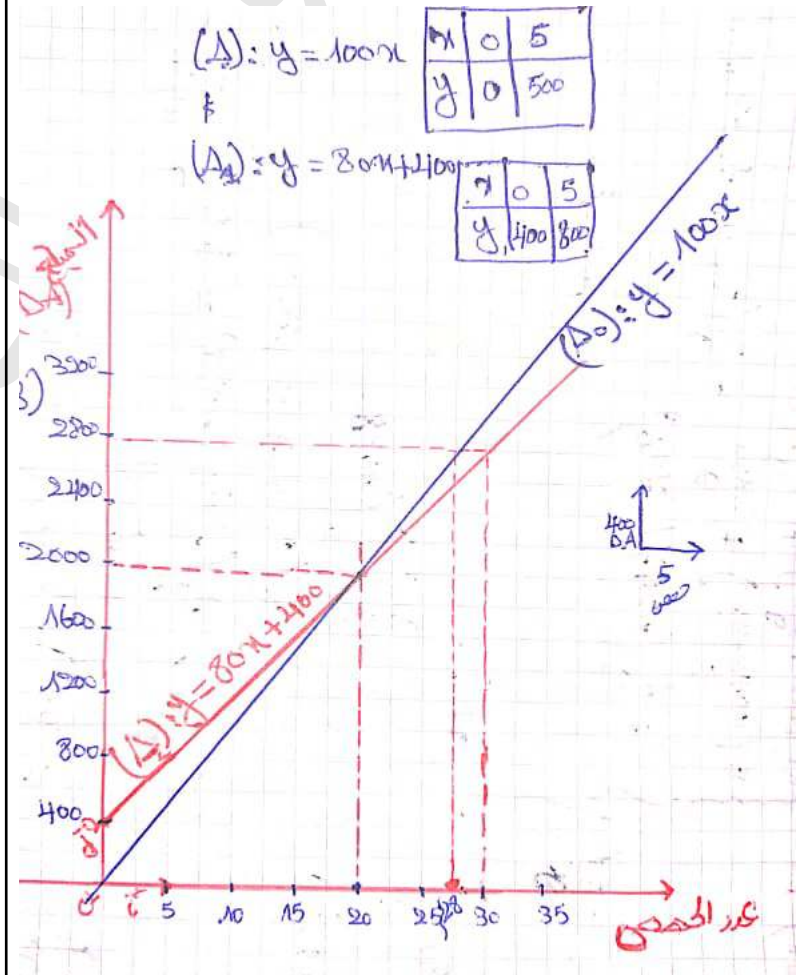 (Δ): y = 100x
x 0 5
y 0 500
(Δ1): y = 80x+400
x 0 5
y 400 800
(Δ0): y = 100x
3200
2800
2400
2000
1600
1200
800
400
(Δ1): y = 80x+400
400 DA
5
حصص
0 5 10 15 20 25 28 30 35
عدد الحصص